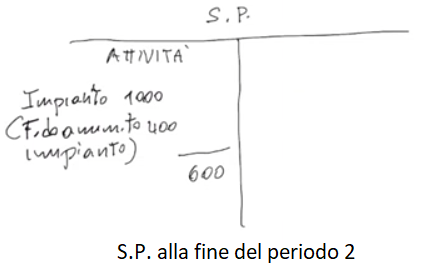 S.P.
ATTIVITÀ
Impianto 1000
(F.do amm.to 400
impianto)
600
S.P. alla fine del periodo 2